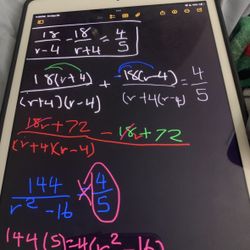 18/r-4 - 18/r+4 = 4/5
18(r+4)/(r+4)(r-4) + -18(r-4)/(r+4(r-4) = 4/5
18r+72 - 18r+72/(r+4)(r-4)
144/r²-16 × 4/5
144(5)=4(r²-16)